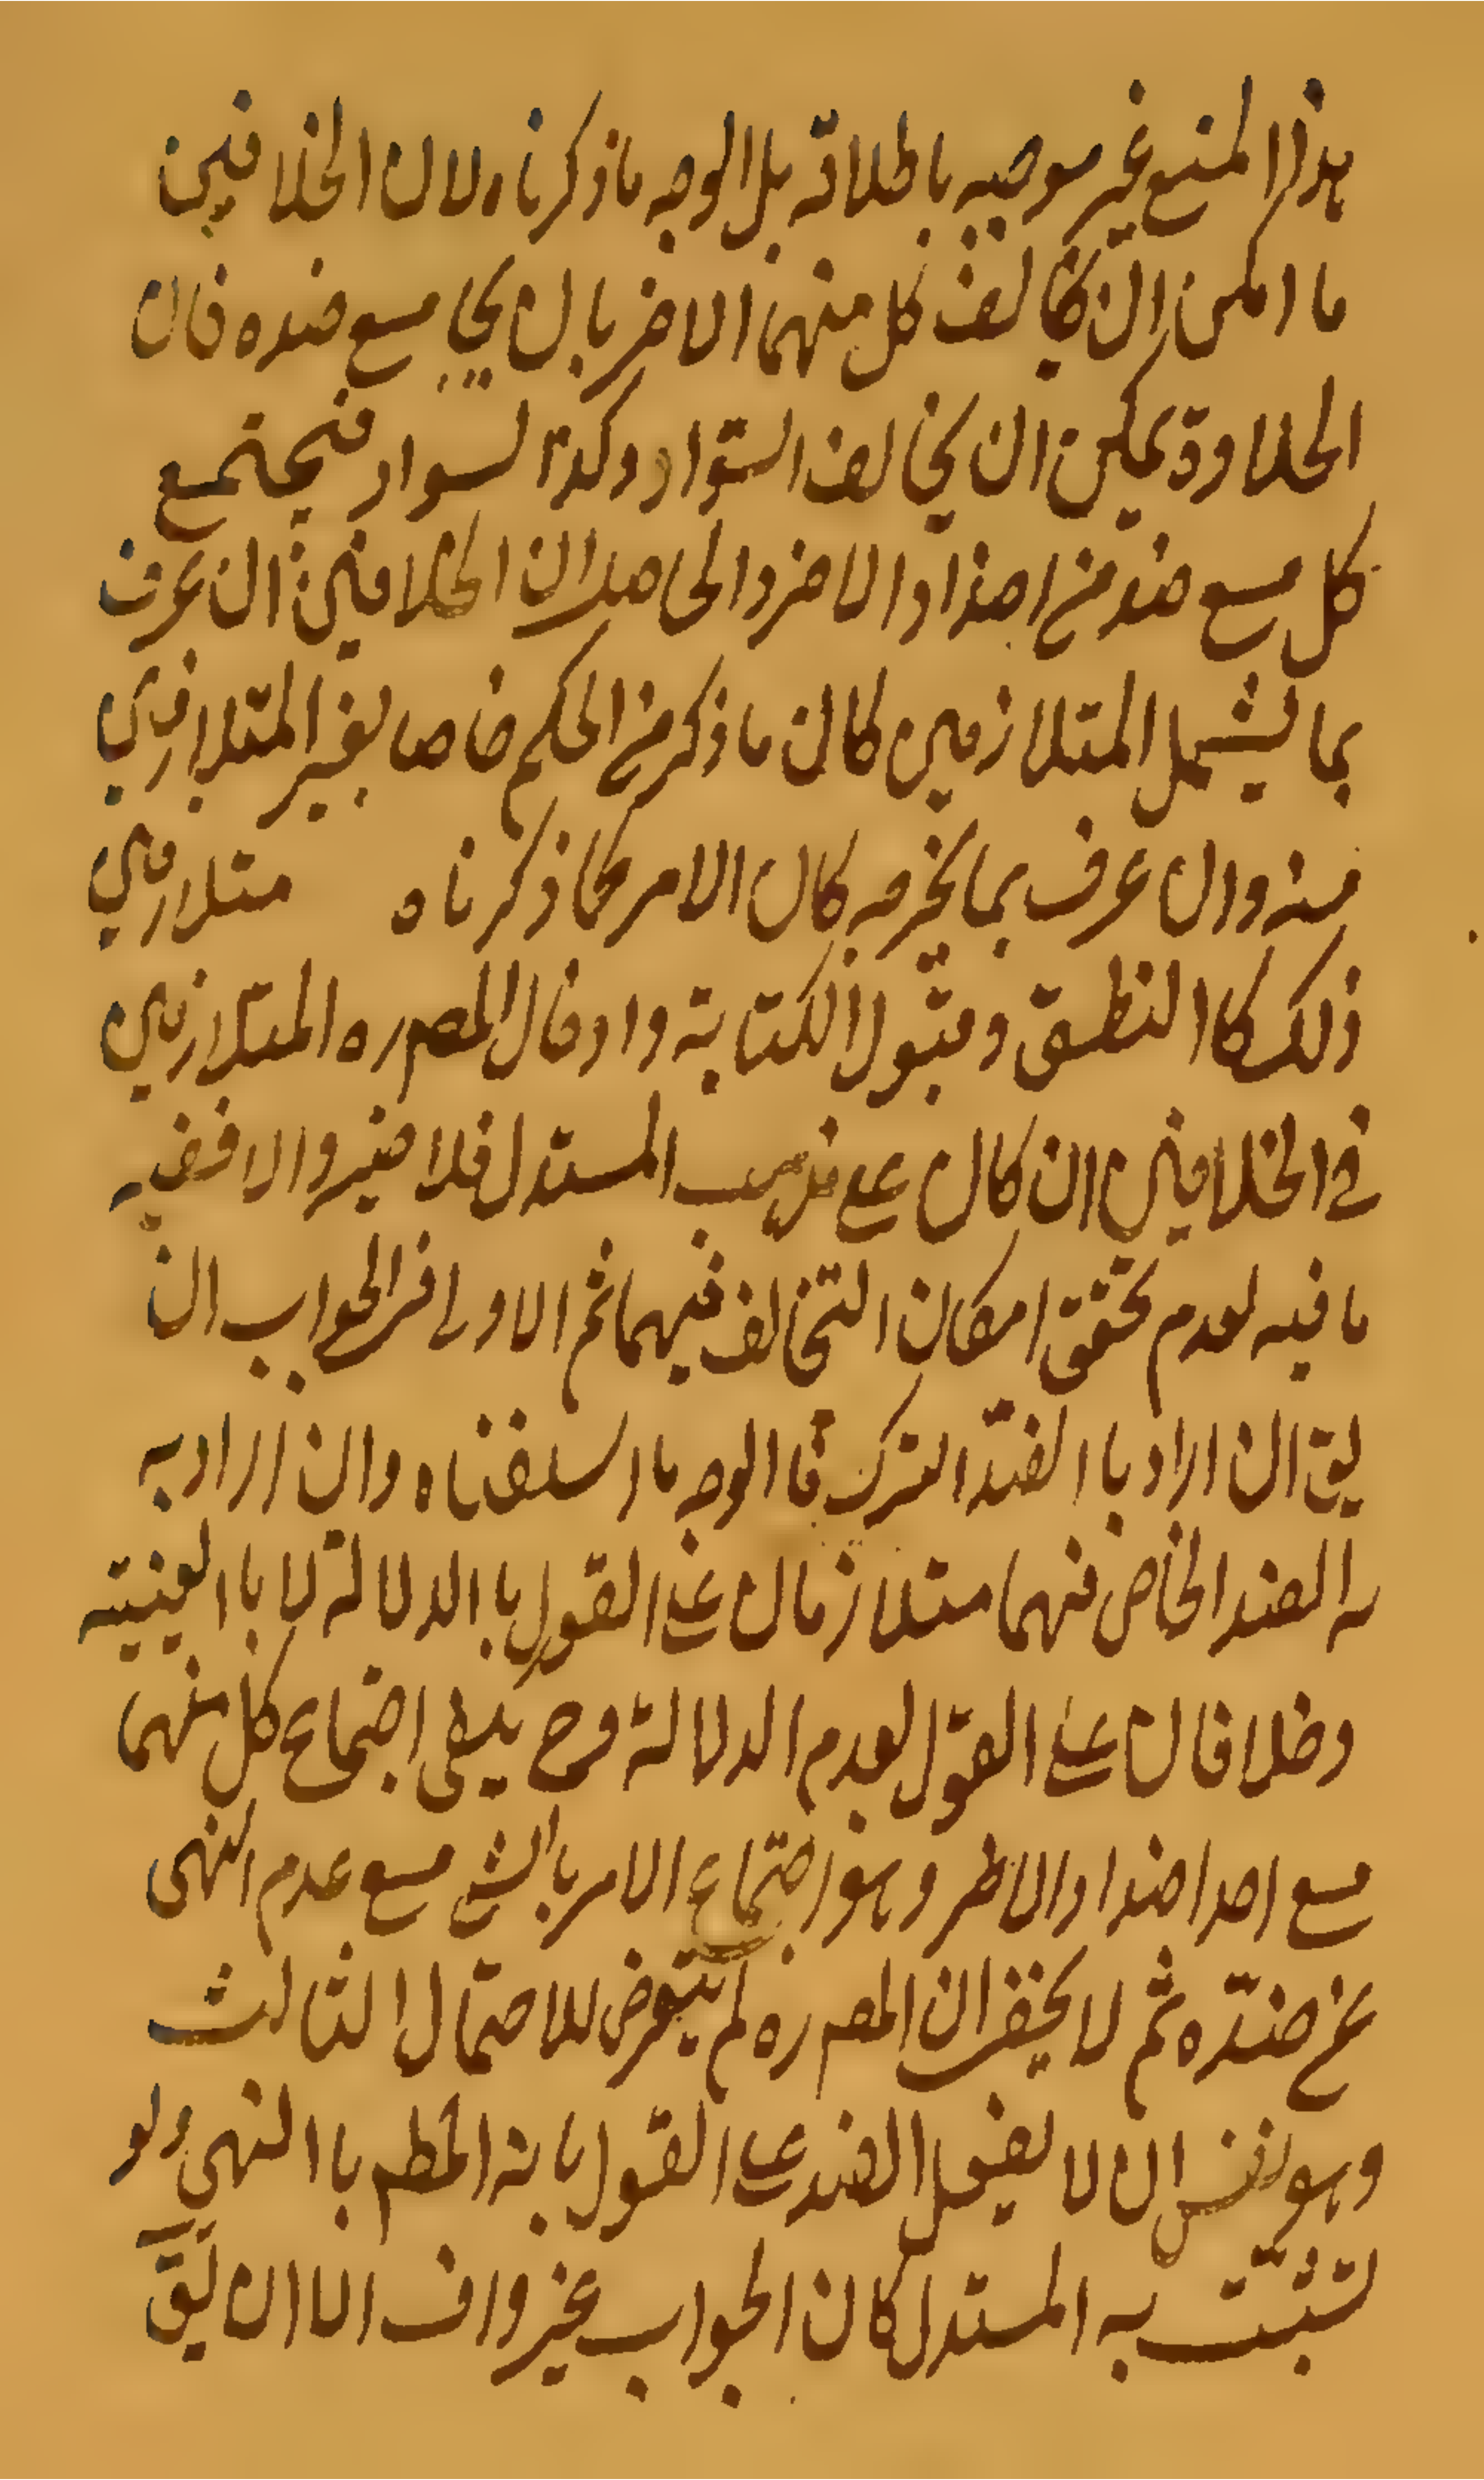 هذا المنع غير موجه باطلاقه بل الوجه ما ذكرناه لان الخلافين
ما امكن ان يخالف كل منهما الاخر بان يجامع ضده فان
الحلاوة يمكن ان يخالف السواد وكذا السواد فيجتمع
كل مع ضد من اضداد الاخر والحاصل ان الخلافين ان عرف
بما يشمل المتلازمين كان ما ذكر من الحكم خاصا بغير المتلازمين
منه وان عرف بما يخرجه كان الامر كما ذكرناه متلازمين
ذلك كالنطق وقبول الكتابة وادخال المصره المتلازمين
في الخلافين ان كان على مذهب المستدل فلا ضير والا ففيه
ما فيه لعدم تحقق امكان التخالف فيهما ثم الاولى في الجواب ان
يق ان اراد باالضد الترك فاالوجه ما اسلفناه وان اراد به
الضد الخاص فهما متلازمان على القول باالدلالة لا باالعينية
وخلافان على القول بعدم الدلالة وح يكفى اجتماع كل منهما
مع احد اضداد الاخر وهو اجتماع الامر بالشئ مع عدم النهى
عن ضده ثم لا يخفى ان المصره لم يتعرض للاحتمال الثالث
وهو نفس ان لا يفعل الضد على القول بانه المط باالنهي ولو
تشبث به المستدل كان الجواب عنه واف الا ان يق